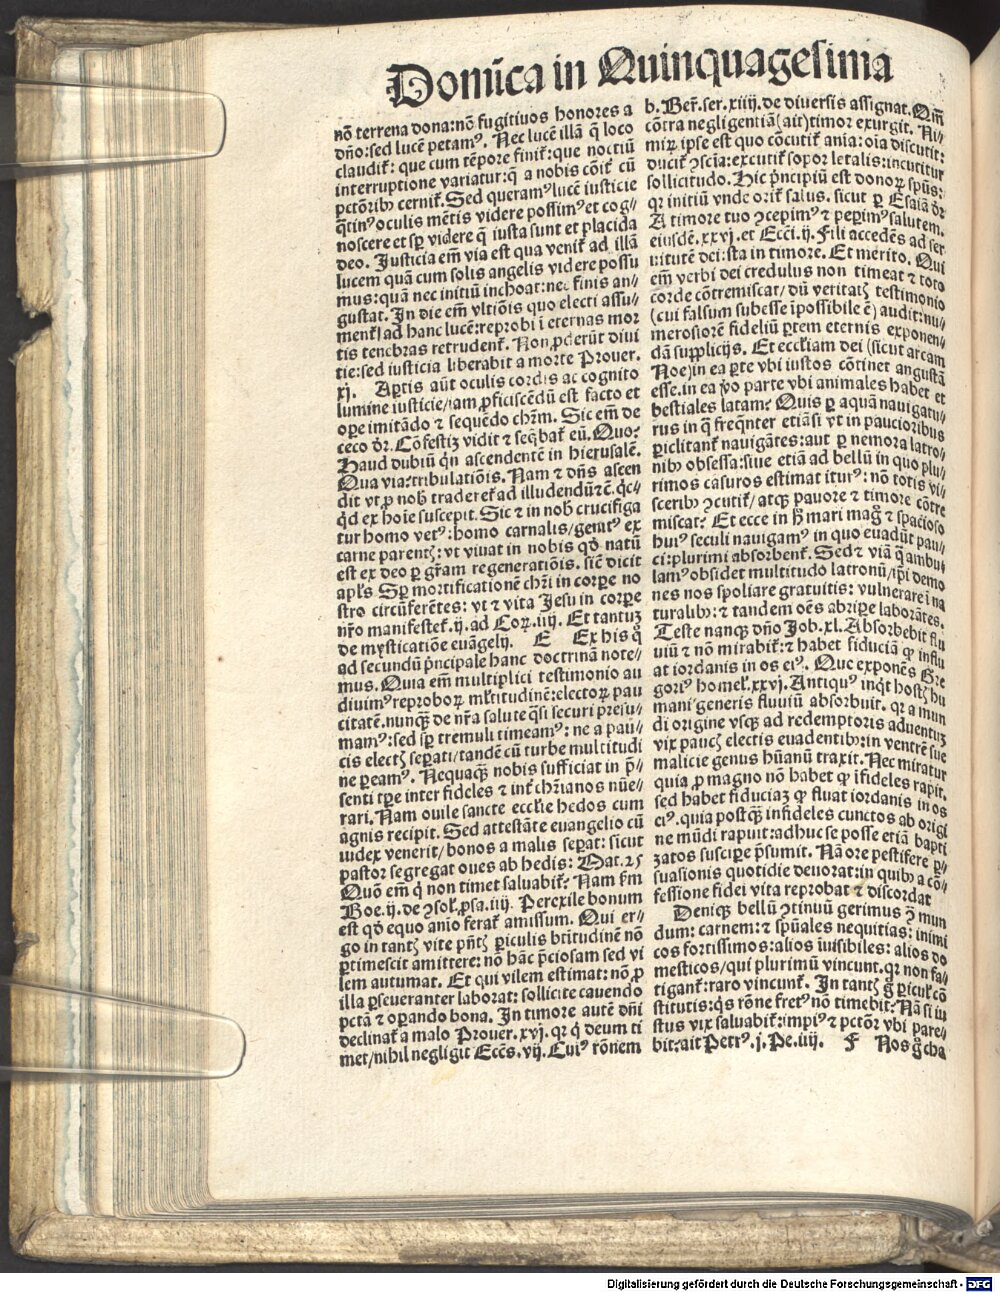 Domi̅ca in Quinquagesima
no̅ terrena dona:no̅ fugitiuos honores a
dn̅o:sed luce̅ petamꝰ. Nec luce̅ illa̅ q̅ loco
claudit᷑: que cum te̅pore finit᷑:que noctiu̅
interruptione variatur:q̅ a nobis co̅it᷑ cu̅
pct̅orib⁊ cernit᷑. Sed queramꝰ luce̅ iusticie
q̅tinꝰ oculis me̅tis videre possimꝰ et cog⸗
noscere et sp̅ videre q̅ iusta sunt et placida
deo. Justicia em̅ via est qua venit᷑ ad illa̅
lucem qua̅ cum solis angelis videre possu
mus:qua̅ nec initiu̅ inchoat:nec finis an⸗
gustat. In die em̅ vltio̅is quo electi assu⸗
ment᷑ ad hanc luce̅:reprobi i̅ eternas mor
tis tenebras retrudent᷑. Non ꝓderu̅t diui
tie:sed iusticia liberabit a morte Prouer.
xj. Aꝑtis au̅t oculis cordis ac cognito
lumine iusticie/iam ꝓficisce̅du̅ est facto et
oꝑe imita̅do ⁊ seque̅do chr̅m. Sic em̅ de
ceco d̅r. Co̅festiȝ vidit ⁊ seq̅bat᷑ eu̅. Quo?
Haud dubiu̅ q̅n ascendente̅ in hierusale̅.
Qua via?tribulatio̅is. Nam ⁊ dn̅s ascen
dit vt ꝓ nob̅ traderet᷑ ad illudendu̅ ⁊c̅. q̅c⸗
q̅d ex ho̅ie suscepit. Sic ⁊ in nob̅ crucifiga
tur homo vetꝰ:homo carnalis/genitꝰ ex
carne parentȝ:vt viuat in nobis qd̅ natu̅
est ex deo ꝑ gr̅am regeneratio̅is. sic̅ dicit
apl̅s. Sp̅ mortificatione̅ chr̅i in corꝑe no
stro circu̅fere̅tes: vt ⁊ vita Jesu in corꝑe
nr̅o manifestet᷑.ij.ad Coꝝ.iiij. Et tantuȝ
de mysticatio̅e eua̅gelij. E Ex his q̅
ad secundu̅ p̅ncipale hanc doctrina̅ note⸗
mus. Quia em̅ multiplici testimonio au
diuimꝰ reproboꝝ ml̅titudine̅:electoꝝ pau
citate̅.nunqꝫ de nr̅a salute q̅si securi presu⸗
mamꝰ:sed sp̅ tremuli timeamꝰ: ne a pau⸗
cis electȝ seꝑati/tande̅ cu̅ turbe multitudi
ne ꝑeamꝰ. Nequaqꝫ nobis sufficiat in p̅⸗
senti tꝑe inter fideles ⁊ int᷑ chr̅ianos nu̅e⸗
rari. Nam ouile sancte eccl̅ie hedos cum
agnis recipit. Sed attesta̅te euangelio cu̅
iudex venerit/bonos a malis seꝑat: sicut
pastor segregat oues ab hedis: Mat.25
Quo̅ em̅ q̅ non timet saluabit᷑? Nam s̅m
Boe.ij.de ꝯsol̅.ꝓsa.iiij. Percxile bonum
est qd̅ equo anio ferat᷑ amissum. Qui er⸗
go in tantȝ vite pn̅tȝ ꝑiculis btitudine̅ no̅
ꝑtimescit amittere: no̅ ha̅c p̅ciosam sed vi
lem autumat. Et qui vilem estimat: no̅ ꝓ
illa ꝑseueranter laborat: sollicite cauendo
pct̅a ⁊ oꝑando bona. In timore aute̅ dn̅i
declinat᷑ a malo Prouer.xvj. qr q̅ deum ti
met/nihil negligit Ecc̅s.vij. Cuiꝰ ro̅nem
b. Ber̅.ser.xiiij.de diuersis assignat.Qm̅
co̅tra negligentia̅(ait)timor exurgit. Ni⸗
miꝝ ipse est quo co̅cutit᷑ ania:oi̅a discutit:
ducit᷑ ꝯsci̅a:excutit᷑ sopor letalis:incutitur
sollicitudo. Hic p̅ncipiu̅ est donoꝝ spu̅s:
qr initiu̅ vnde orit᷑ salus. sicut ꝑ Esaia̅ d̅r
A timore tuo ꝯcepimꝰ ⁊ peꝑimꝰ salutem.
eiusde̅.xxvj.et Ecc̅i.ij. Fili accede̅s ad ser
uitute̅ dei:sta in timore. Et merito. Qui
em̅ verbi dei credulus non timeat ⁊ toto
corde co̅tremiscat/du̅ veritatȝ testimonio
(cui falsum subesse i̅possibile e̅)audit:nu⸗
merosiore̅ fideliu̅ ꝑtem eternis exponen⸗
da̅ supplicijs. Et eccl̅iam dei (sicut arcam
Noe)in ea ꝑte vbi iustos co̅tinet angusta̅
esse.in ea v̅o parte vbi animales habet et
bestiales latam? Quis ꝑ aqua̅ nauigatu⸗
rus in q̅ freqn̅ter etia̅si vt in paucioribus
ꝑiclitant᷑ nauiga̅tes:aut ꝑ nemora latro⸗
nib⁊ obsessa:siue etia̅ ad bellu̅ in quo plu⸗
rimos casuros estimat iturꝰ: no̅ totis vi⸗
scerib⁊ ꝯcutit᷑/atqꝫ pauore ⁊ timore co̅tre
miscat? Et ecce in h̅ mari mag̅ ⁊ spacioso
huiꝰ seculi nauigamꝰ in quo euadu̅t pau⸗
ci:plurimi absorbent᷑. Sed ⁊ via̅ q̅ ambu⸗
lamꝰ obsidet multitudo latronu̅/ip̅i demo
nes nos spoliare gratuitis: vulnerare i̅ na
turalib⁊:⁊ tandem oe̅s abriꝑe labora̅tes.
Teste nanqꝫ dn̅o Job.xl. Absorbebit flu
uiu̅ ⁊ no̅ mirabit᷑:⁊ habet fiducia̅ ꝙ influ
at iordanis in os eiꝰ. Quc expone̅s Gre
goriꝰ homel̅.xxvj. Antiquꝰ inq̅t hostȝ hu
mani generis fluuiu̅ absorbuit. qr a mun
di origine vsqꝫ ad redemptoris aduentuȝ
vix paucȝ electis euadentib⁊:in ventre̅ sue
malicie genus hu̅anu̅ traxit. Nec miratur
quia ꝓ magno no̅ habet ꝙ i̅fideles rapit.
sed habet fiduciaȝ ꝙ fluat iordanis in os
eiꝰ.quia postqꝫ infideles cunctos ab origi
ne mu̅di rapuit:adhuc se posse etia̅ bapti
ȝatos susciꝑe p̅sumit. Na̅ ore pestifere ꝑ⸗
suasionis quotidie deuorat:in quib⁊ a co̅⸗
fessione fidei vita reprobat ⁊ discordat
Deniqꝫ bellu̅ ꝯtinuu̅ gerimus ꝯ̅ mun
dum: carnem:⁊ spu̅ales nequitias: inimi
cos fortissimos:alios iuisibiles: alios do
mesticos/qui plurimu̅ vincunt.qr non fa⸗
tigant᷑:raro vincunt᷑. In tantȝ g̅ ꝑicul᷑ co̅
stitutis:q̅s ro̅ne fretꝰ no̅ timebit? Na̅ si iu
stus vix saluabit᷑:impiꝰ ⁊ pct̅or vbi pare⸗
bit:ait Petrꝰ.j.Pe.iiij. F Nos g̅ cha
Digitalisierung gefördert durch die Deutsche Forschungsgemeinschaft - DFG